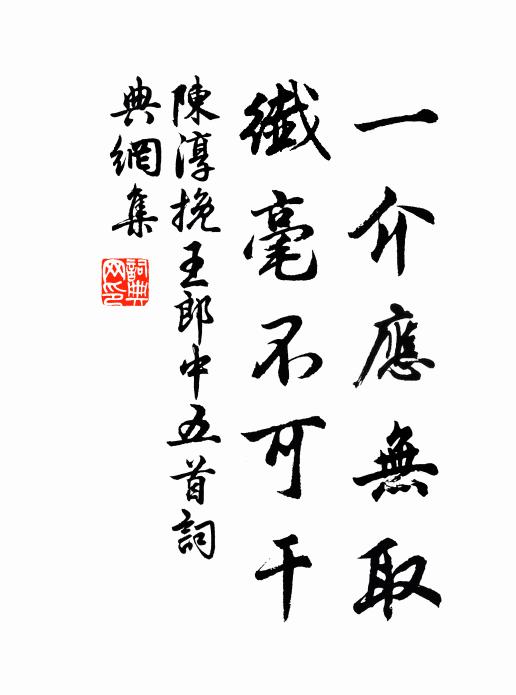 一介應無取
纖毫不可干
陳淳挽王郎中五首詞
典網集
詞典
网印